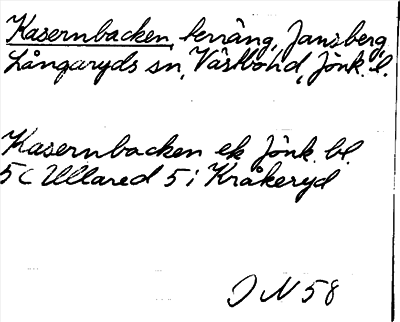 Kasernbacken, terräng, Jansberg,
Långaryds sn, Västbo hd, Jönk. l.
Kasernbacken ek Jönk. bl.
5 C Ullared 5 i Kråkeryd
I N 58